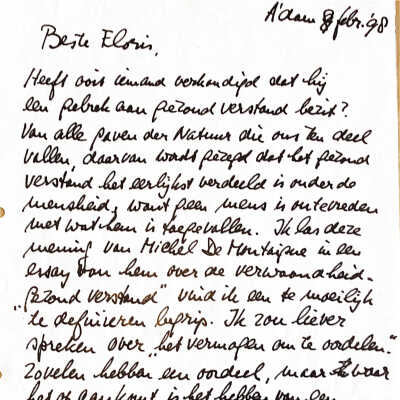 A'dam 8 febr. '98
Beste Floris,
Heeft ooit iemand verkondigd dat hij
een gebrek aan gezond verstand bezit?
Van alle gaven der Natuur die ons ten deel
vallen, daarvan wordt gezegd dat het gezond
verstand het eerlijkst verdeeld is onder de
mensheid, want geen mens is ontevreden
met wat hem is toegevallen. Ik las deze
mening van Michel De Montaigne in een
essay van hem over de verwaandheid.
„Gezond verstand” vind ik een te moeilijk
te definiëren begrip. Ik zou liever
spreken over „het vermogen om te oordelen.”
Zovelen hebben een oordeel, maar waar
het op aankomt is het hebben van een